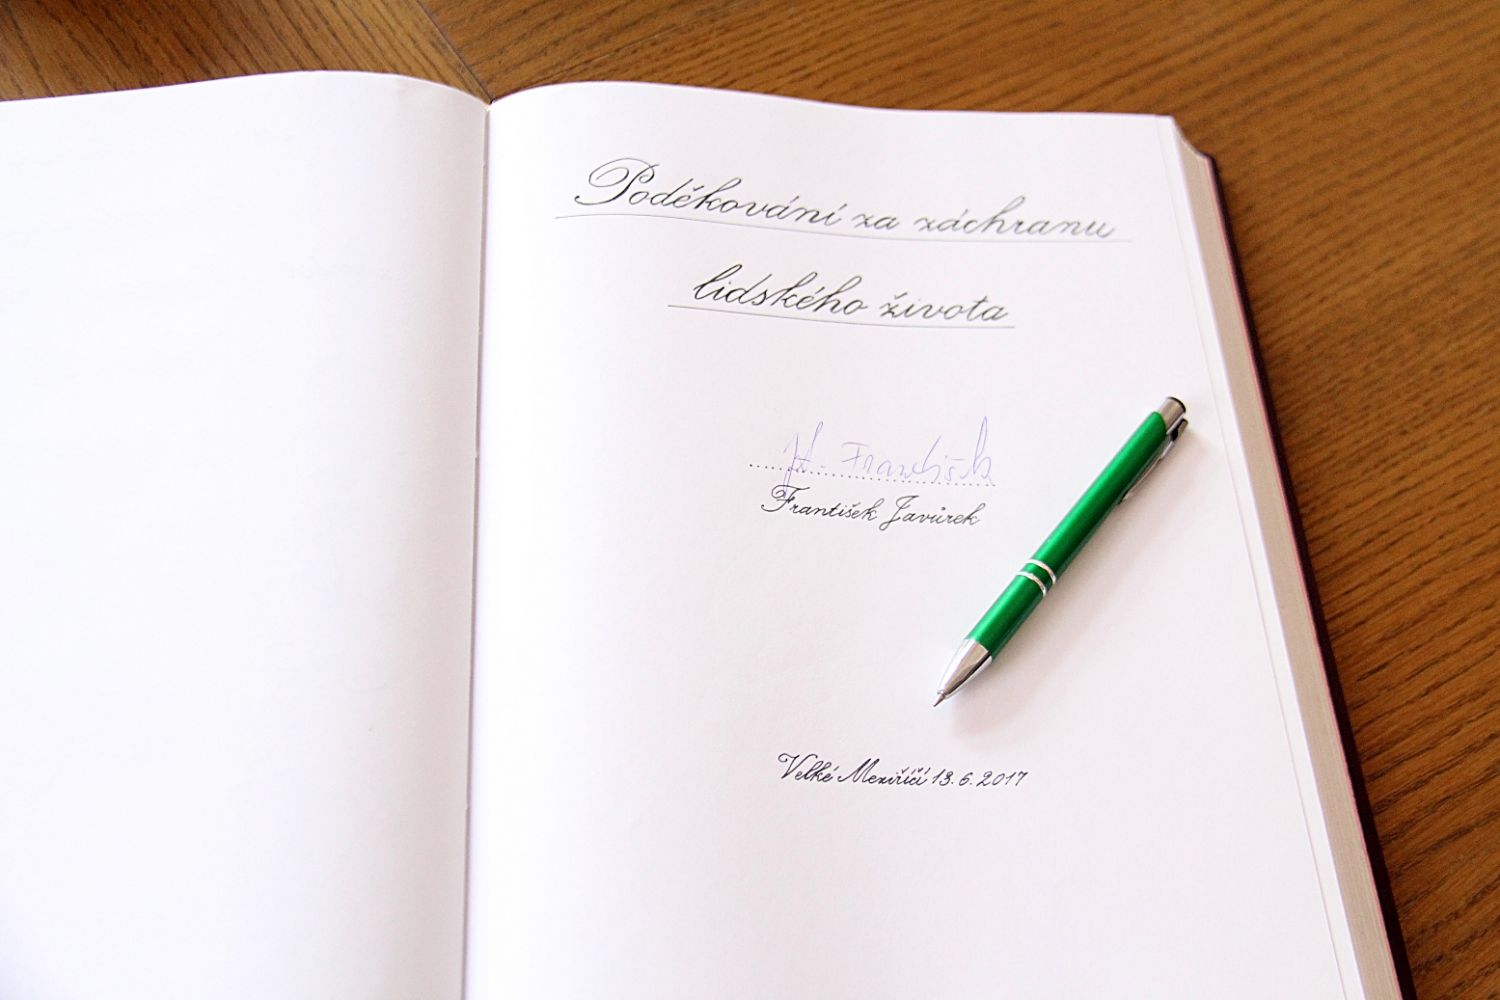 Poděkování za záchranu
lidského života
František
František Javůrek
Velké Meziříčí 13. 6. 2017